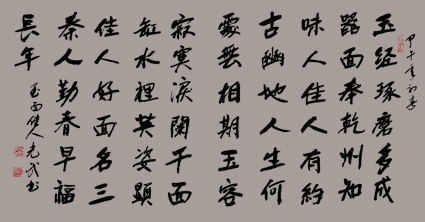 玉经琢磨多成
器面奉乾州知
味人佳人有約
古幽地人生何
處無相期玉容
寂寞淚闌干面
缸水裡其姿顯
佳人好面名三
秦人勤春早福
長年
甲午年初春
玉面佳人